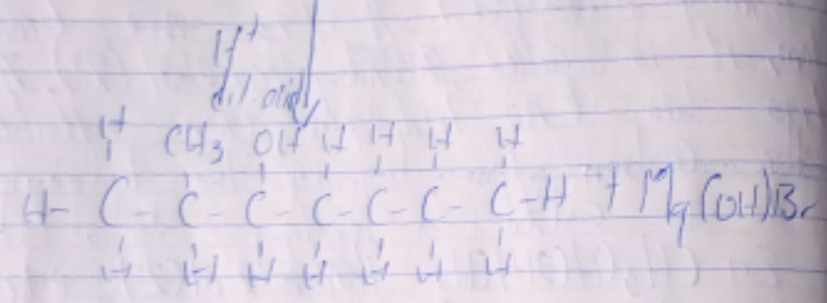 H⁺
dil. acid
H CH₃ OH H H H H
H- C - C - C - C - C - C - C -H + Mg(OH)Br
H H H H H H H